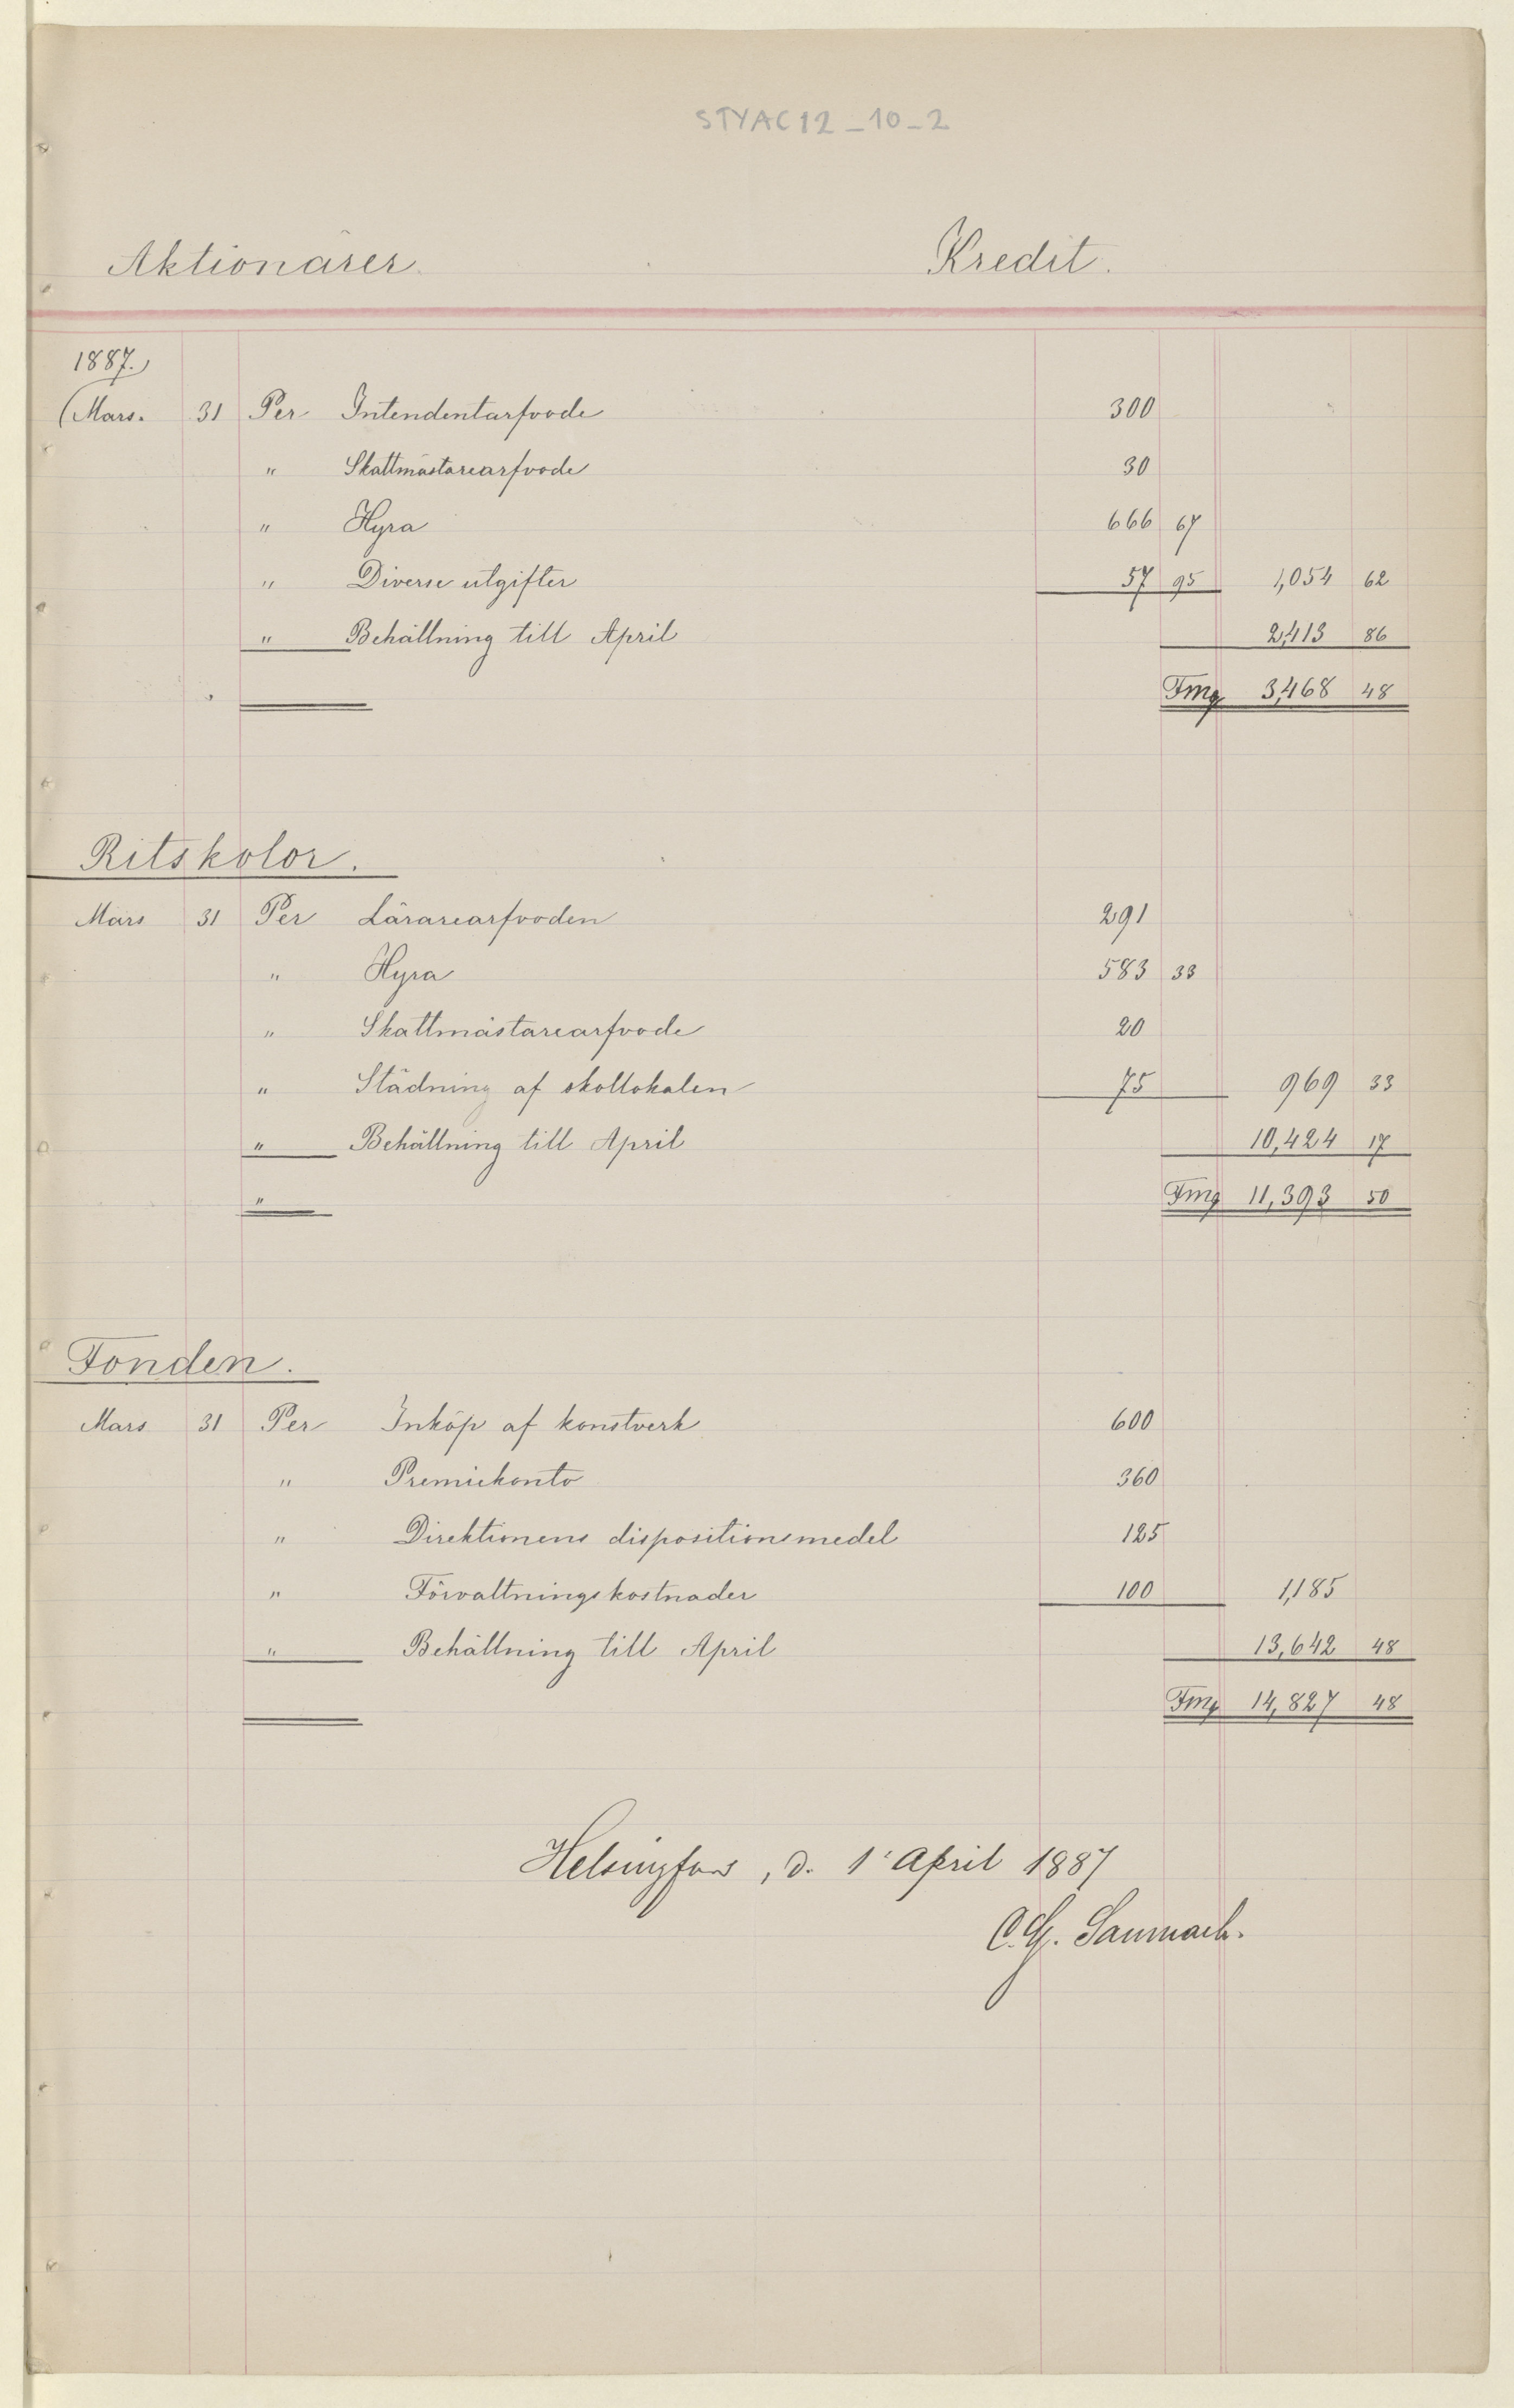 STYAC12_10_2
Aktionärer. Kredit.
1887.
Mars. 31 Per Intendentarfvode 300
" Skattmästarearfvode 30
" Hyra 666 67
" Diverse utgifter 57 95 1,054 62
" Behållning till April 2,413 86
Fmg 3,468 48
Ritskolor.
Mars 31 Per Lärarearfvoden 291
" Hyra 583 33
" Skattmästarearfvode 20
" Städning af skollokalen 75 969 33
" Behållning till April 10,424 17
" Fmg 11,393 50
Fonden.
Mars 31 Per Inköp af konstverk 600
" Premiekonto 360
" Direktionens dispositionsmedel 125
" Förvaltningskostnader 100 1,185
" Behållning till April 13,642 48
Fmg 14,827 48
Helsingfors, d. 1 April 1887
C. G. Sanmark.